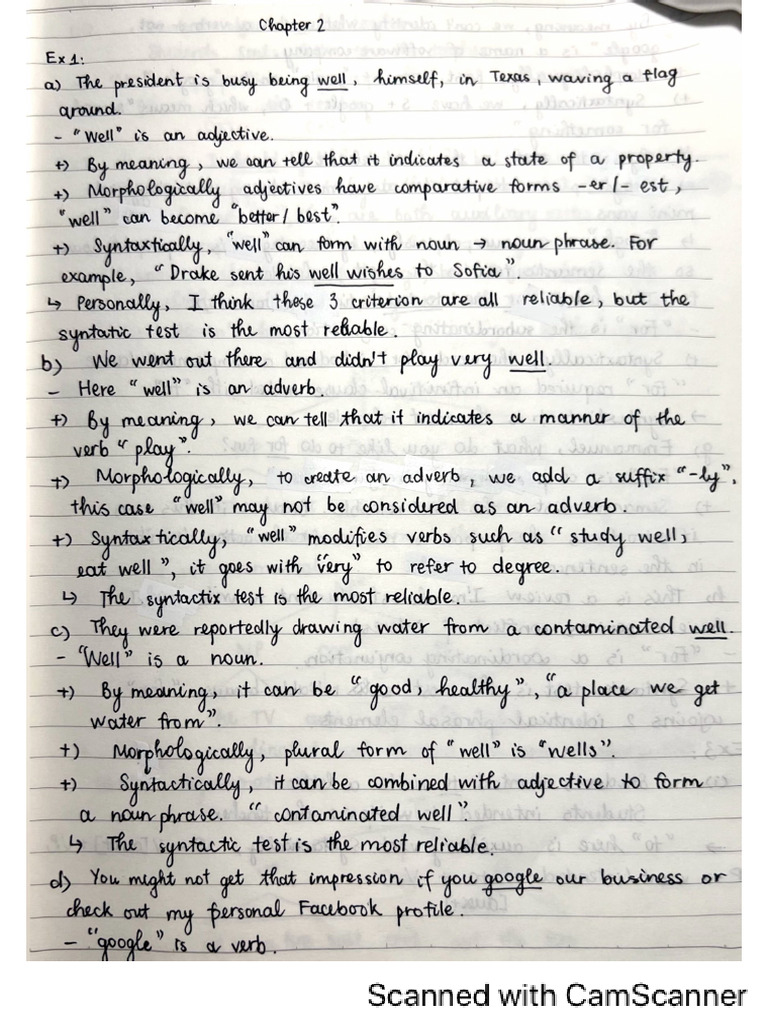 Chapter 2
Ex 1:
a) The president is busy being well, himself, in Texas, waving a flag
around.
- "Well" is an adjective.
+) By meaning, we can tell that it indicates a state of a property.
+) Morphologically adjectives have comparative forms -er/- est,
"well" can become "better/ best".
+) Syntaxtically, "well" can form with noun → noun phrase. For
example, "Drake sent his well wishes to Sofia".
↳ Personally, I think these 3 criterion are all reliable, but the
syntatic test is the most reliable.
b) We went out there and didn't play very well.
- Here "well" is an adverb.
+) By meaning, we can tell that it indicates a manner of the
verb "play".
+) Morphologically, to create an adverb, we add a suffix "-ly",
this case "well" may not be considered as an adverb.
+) Syntaxtically, "well" modifies verbs such as "study well,
eat well", it goes with "very" to refer to degree.
↳ The syntactix test is the most reliable.
c) They were reportedly drawing water from a contaminated well.
- "Well" is a noun.
+) By meaning, it can be "good, healthy", "a place we get
water from".
+) Morphologically, plural form of "well" is "wells".
+) Syntactically, it can be combined with adjective to form
a noun phrase. "contaminated well".
↳ The syntactic test is the most reliable.
d) You might not get that impression if you google our business or
check out my personal Facebook profile.
- "google" is a verb.
Scanned with CamScanner